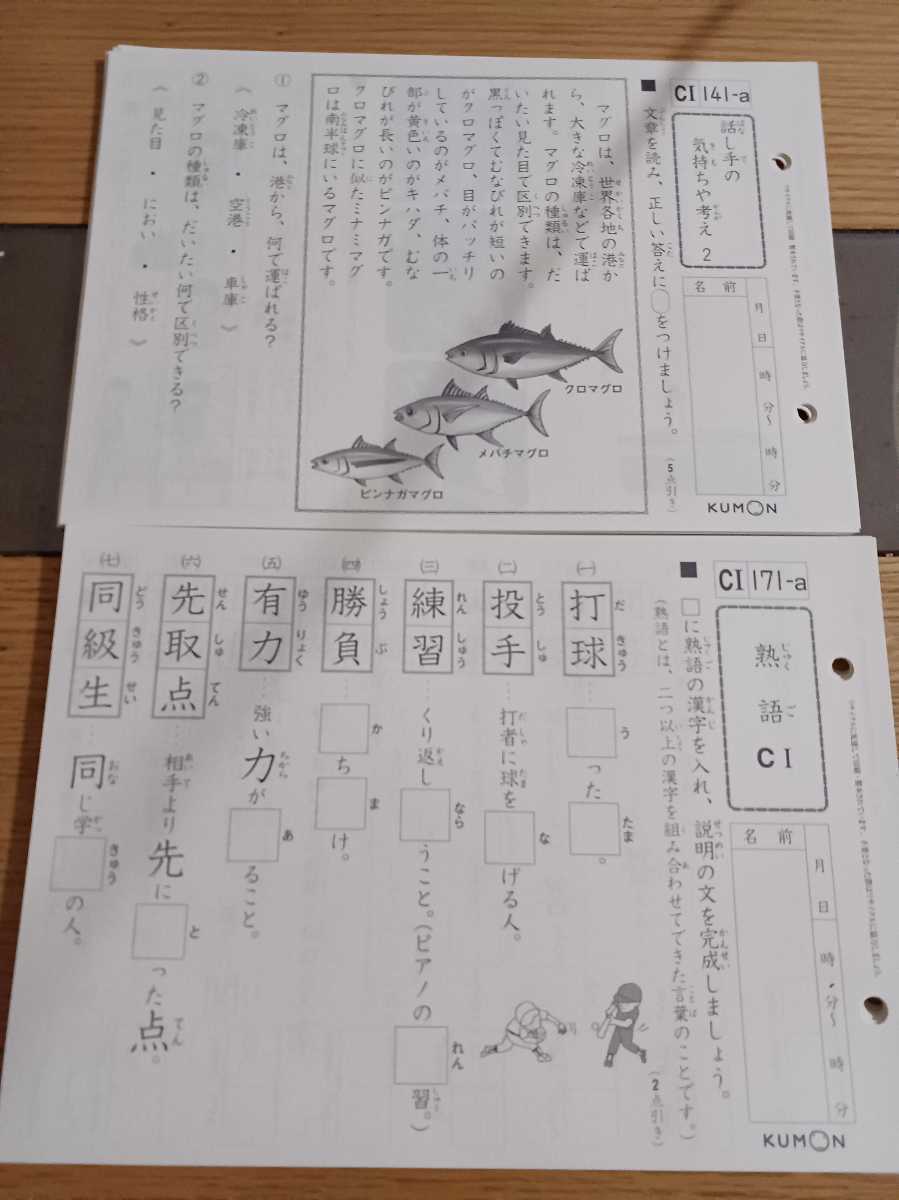 CⅠ 141-a
話し手の
気持ちや考え 2
名前
月 日 時 分～ 時 分
KUMON
■ 文章を読み、正しい答えに○をつけましょう。
(5点引き)
マグロは、世界各地の港か
ら、大きな冷凍庫などで運ば
れます。マグロの種類は、だ
いたい見た目で区別できます。
黒っぽくてむなびれが短いの
がクロマグロ、目がパッチリ
しているのがメバチ、体の一
部が黄色いのがキハダ、むな
びれが長いのがビンナガです。
クロマグロに似たミナミマグ
ロは南半球にいるマグロです。
クロマグロ
メバチマグロ
ビンナガマグロ
① マグロは、港から、何で運ばれる？
（ 冷凍庫 ・ 空港 ・ 車庫 ）
② マグロの種類は、だいたい何で区別できる？
（ 見た目 ・ におい ・ 性格 ）
CⅠ 171-a
熟語
CⅠ
名前
月 日 時 分～ 時 分
KUMON
■ □に熟語の漢字を入れ、説明の文を完成しましょう。
(熟語とは、二つ以上の漢字を組み合わせてできた言葉のことです。)
(2点引き)
㈠ 打球……□った□。
㈡ 投手……打者に球を□げる人。
㈢ 練習……くり返し□うこと。(ピアノの□習。)
㈣ 勝負……□ち□け。
㈤ 有力……強い力が□ること。
㈥ 先取点……相手より先に□った点。
㈦ 同級生……同じ学□の人。